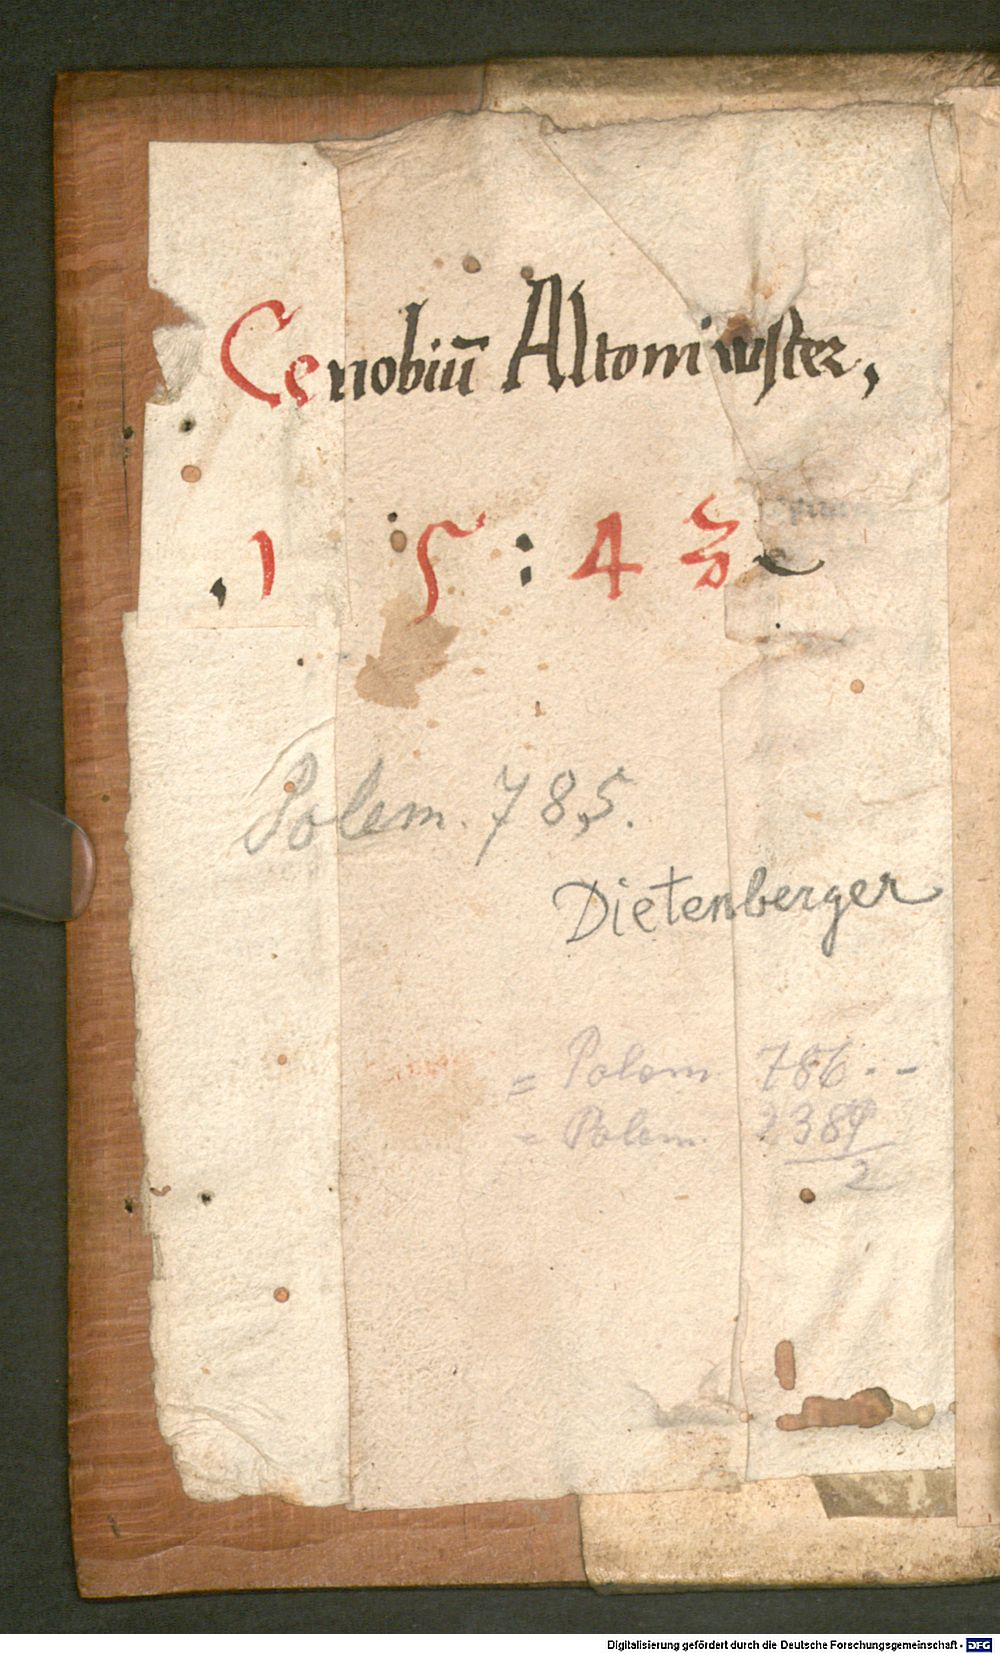 Cenobiū Altomünster,
,1 5 : 4
Polem. 785.
Dietenberger
= Polem 786. -
= Polem. 2389
2
Digitalisierung gefördert durch die Deutsche Forschungsgemeinschaft - DFG